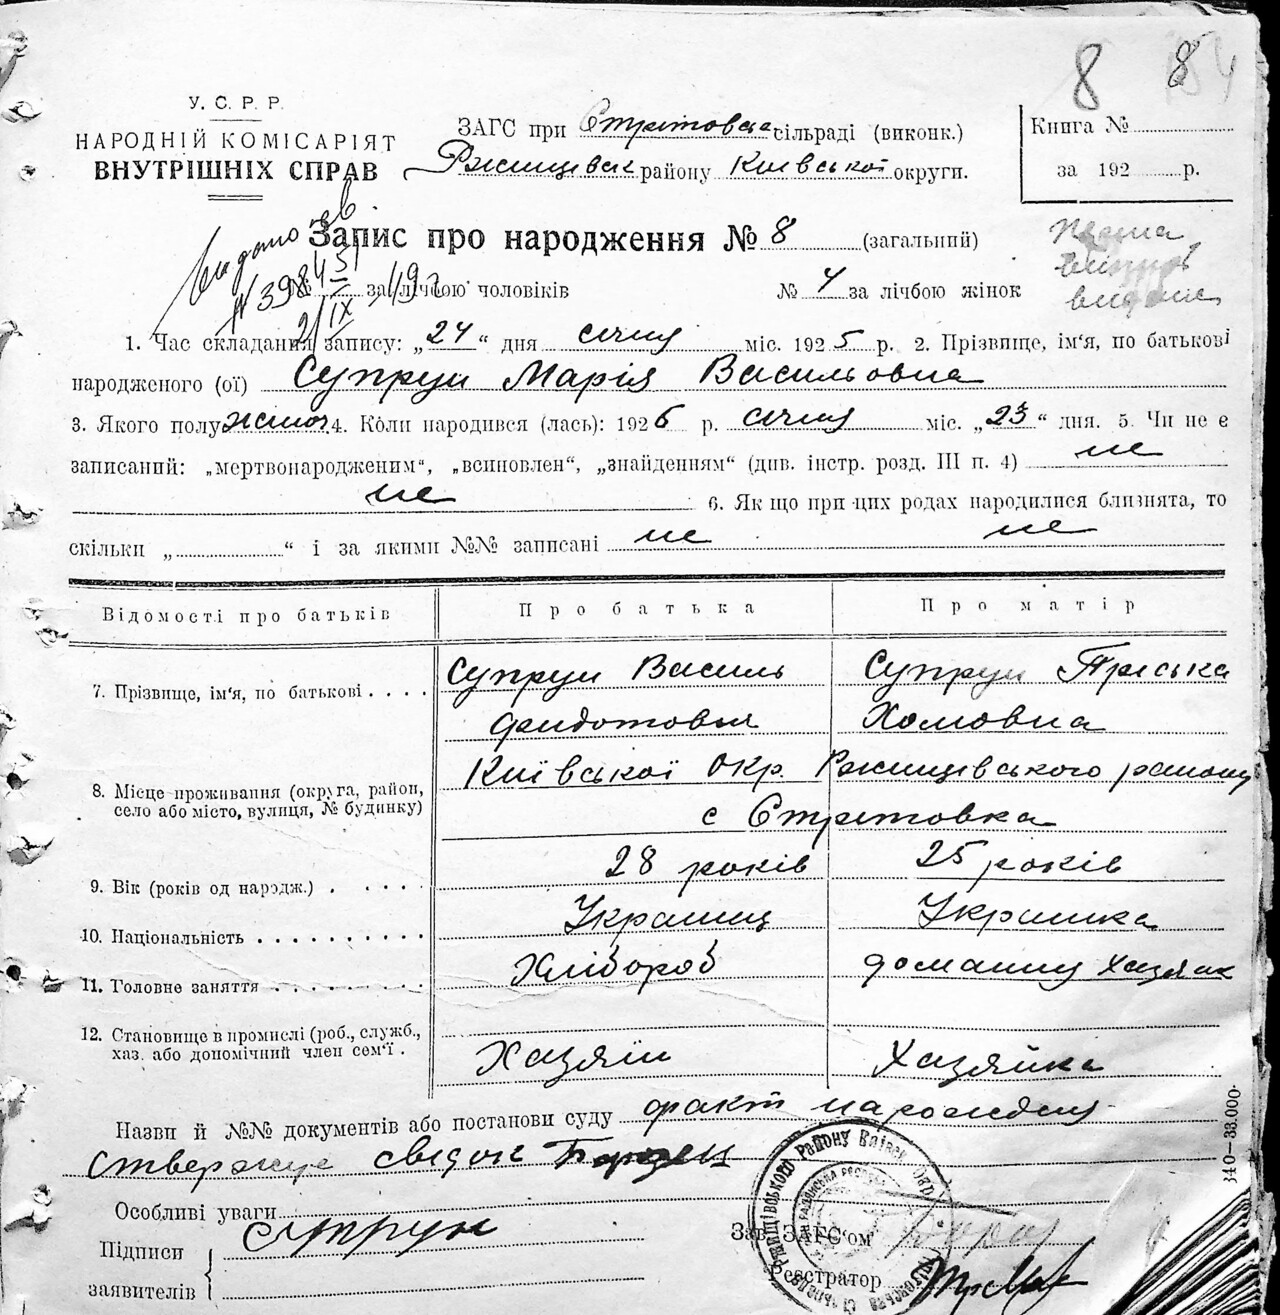 8 8
У. С. Р. Р.
НАРОДНІЙ КОМІСАРІЯТ
ВНУТРІШНІХ СПРАВ
ЗАГС при Стрітовськ сільраді (виконк.)
Ржищівськ району Київської округи.
Книга №
за 192 р.
Запис про народження № 8 (загальний)
Видано св.
№ за лічбою чоловіків
№ 4 за лічбою жінок
1. Час складання запису: „24“ дня січня міс. 1925 р. 2. Прізвище, ім'я, по батькові
народженого (ої) Супрун Марія Васильовна
3. Якого полу жіноч. 4. Коли народився (лась): 1926 р. січня міс. „23“ дня. 5. Чи не є
записаний: „мертвонародженим“, „всиновлен“, „знайденням“ (див. інстр. розд. III п. 4) не
не 6. Як що при цих родах народилися близнята, то
скільки „ “ і за якими №№ записані не не
Відомості про батьків
Про батька
Про матір
7. Прізвище, ім'я, по батькові . . . .
Супрун Василь
Федотовыч
Супрун Пріська
Хомовна
8. Місце проживання (округа, район,
село або місто, вулиця, № будинку)
Київської Окр. Ржищівського району
с Стрітовка
9. Вік (років од народж.) . . . . .
28 років
25 років
10. Національність . . . . . . . . . .
Українец
Українка
11. Головне заняття . . . . . . . . .
Хлібороб
домашну хазяйк
12. Становище в промислі (роб., служб.,
хаз. або допомічний член сем'ї .
Хазяїн
Хазяйка
Назви й №№ документів або постанови суду факт народження
ствержує свідок
Особливі уваги
Підписи
заявителів
Супрун
Зав. ЗАГС'ом
Реєстратор
340—33.000.